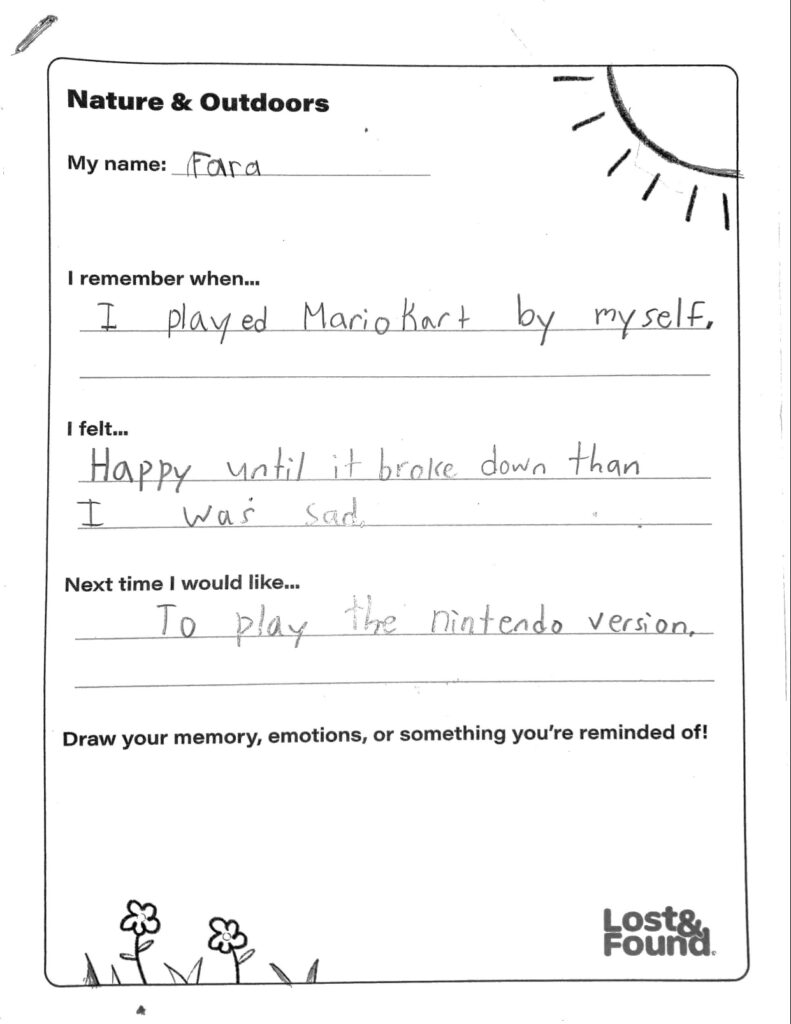 Nature & Outdoors
My name: Fara
I remember when...
I played Mario Kart by myself.
I felt...
Happy until it broke down than
I was sad.
Next time I would like...
To play the nintendo version.
Draw your memory, emotions, or something you're reminded of!
Lost&
Found®